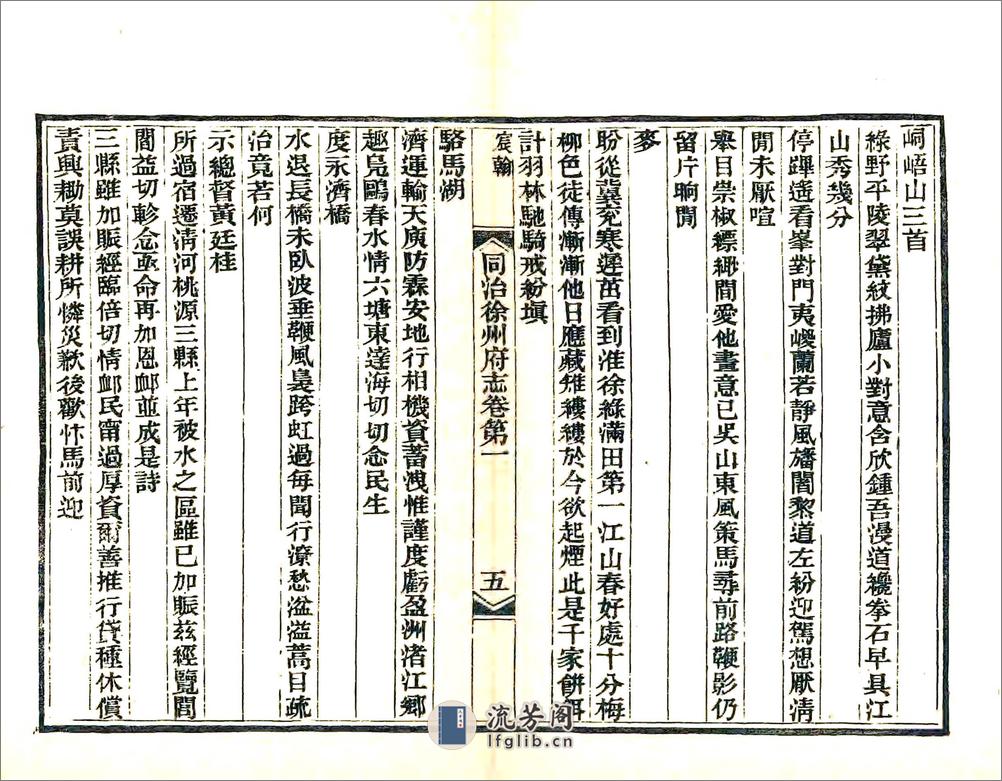 峒峿山三首
綠野平陵翠黛紋拂廬小對意含欣鍾吾漫道纔拳石早具江
山秀幾分
停蹕遙看峯對門夷巉蘭若靜風旛閭黎道左紛迎駕想厭淸
閒未厭喧
舉目崇椒縹緲間愛他畫意已吳山東風策馬尋前路鞭影仍
留片晌閒
麥
盼從冀兗寒遲茁看到淮徐綠滿田第一江山春好處十分梅
柳色徒傳漸漸他日應藏雉縷縷於今欲起煙此是千家餅餌
計羽林馳騎戒紛塡
宸翰
同治徐州府志卷第一
五
駱馬湖
濟運輸天庾防霖安地行相機資蓄洩惟謹度虧盈洲渚江鄉
趣鳧鷗春水情六塘東達海切切念民生
度永濟橋
水退長橋未臥波垂鞭風曩跨虹過每聞行潦愁溢溢蒿目疏
治竟若何
示總督黃廷桂
所過宿遷淸河桃源三縣上年被水之區雖已加賑茲經覽閭
閻益切軫念亟命再加恩卹並成是詩
三縣雖加賑經臨倍切情卹民甯過厚資爾善推行貸種休償
責興耡莫誤耕所憐災歉後歡忭馬前迎
流芳阁
lfglib.cn